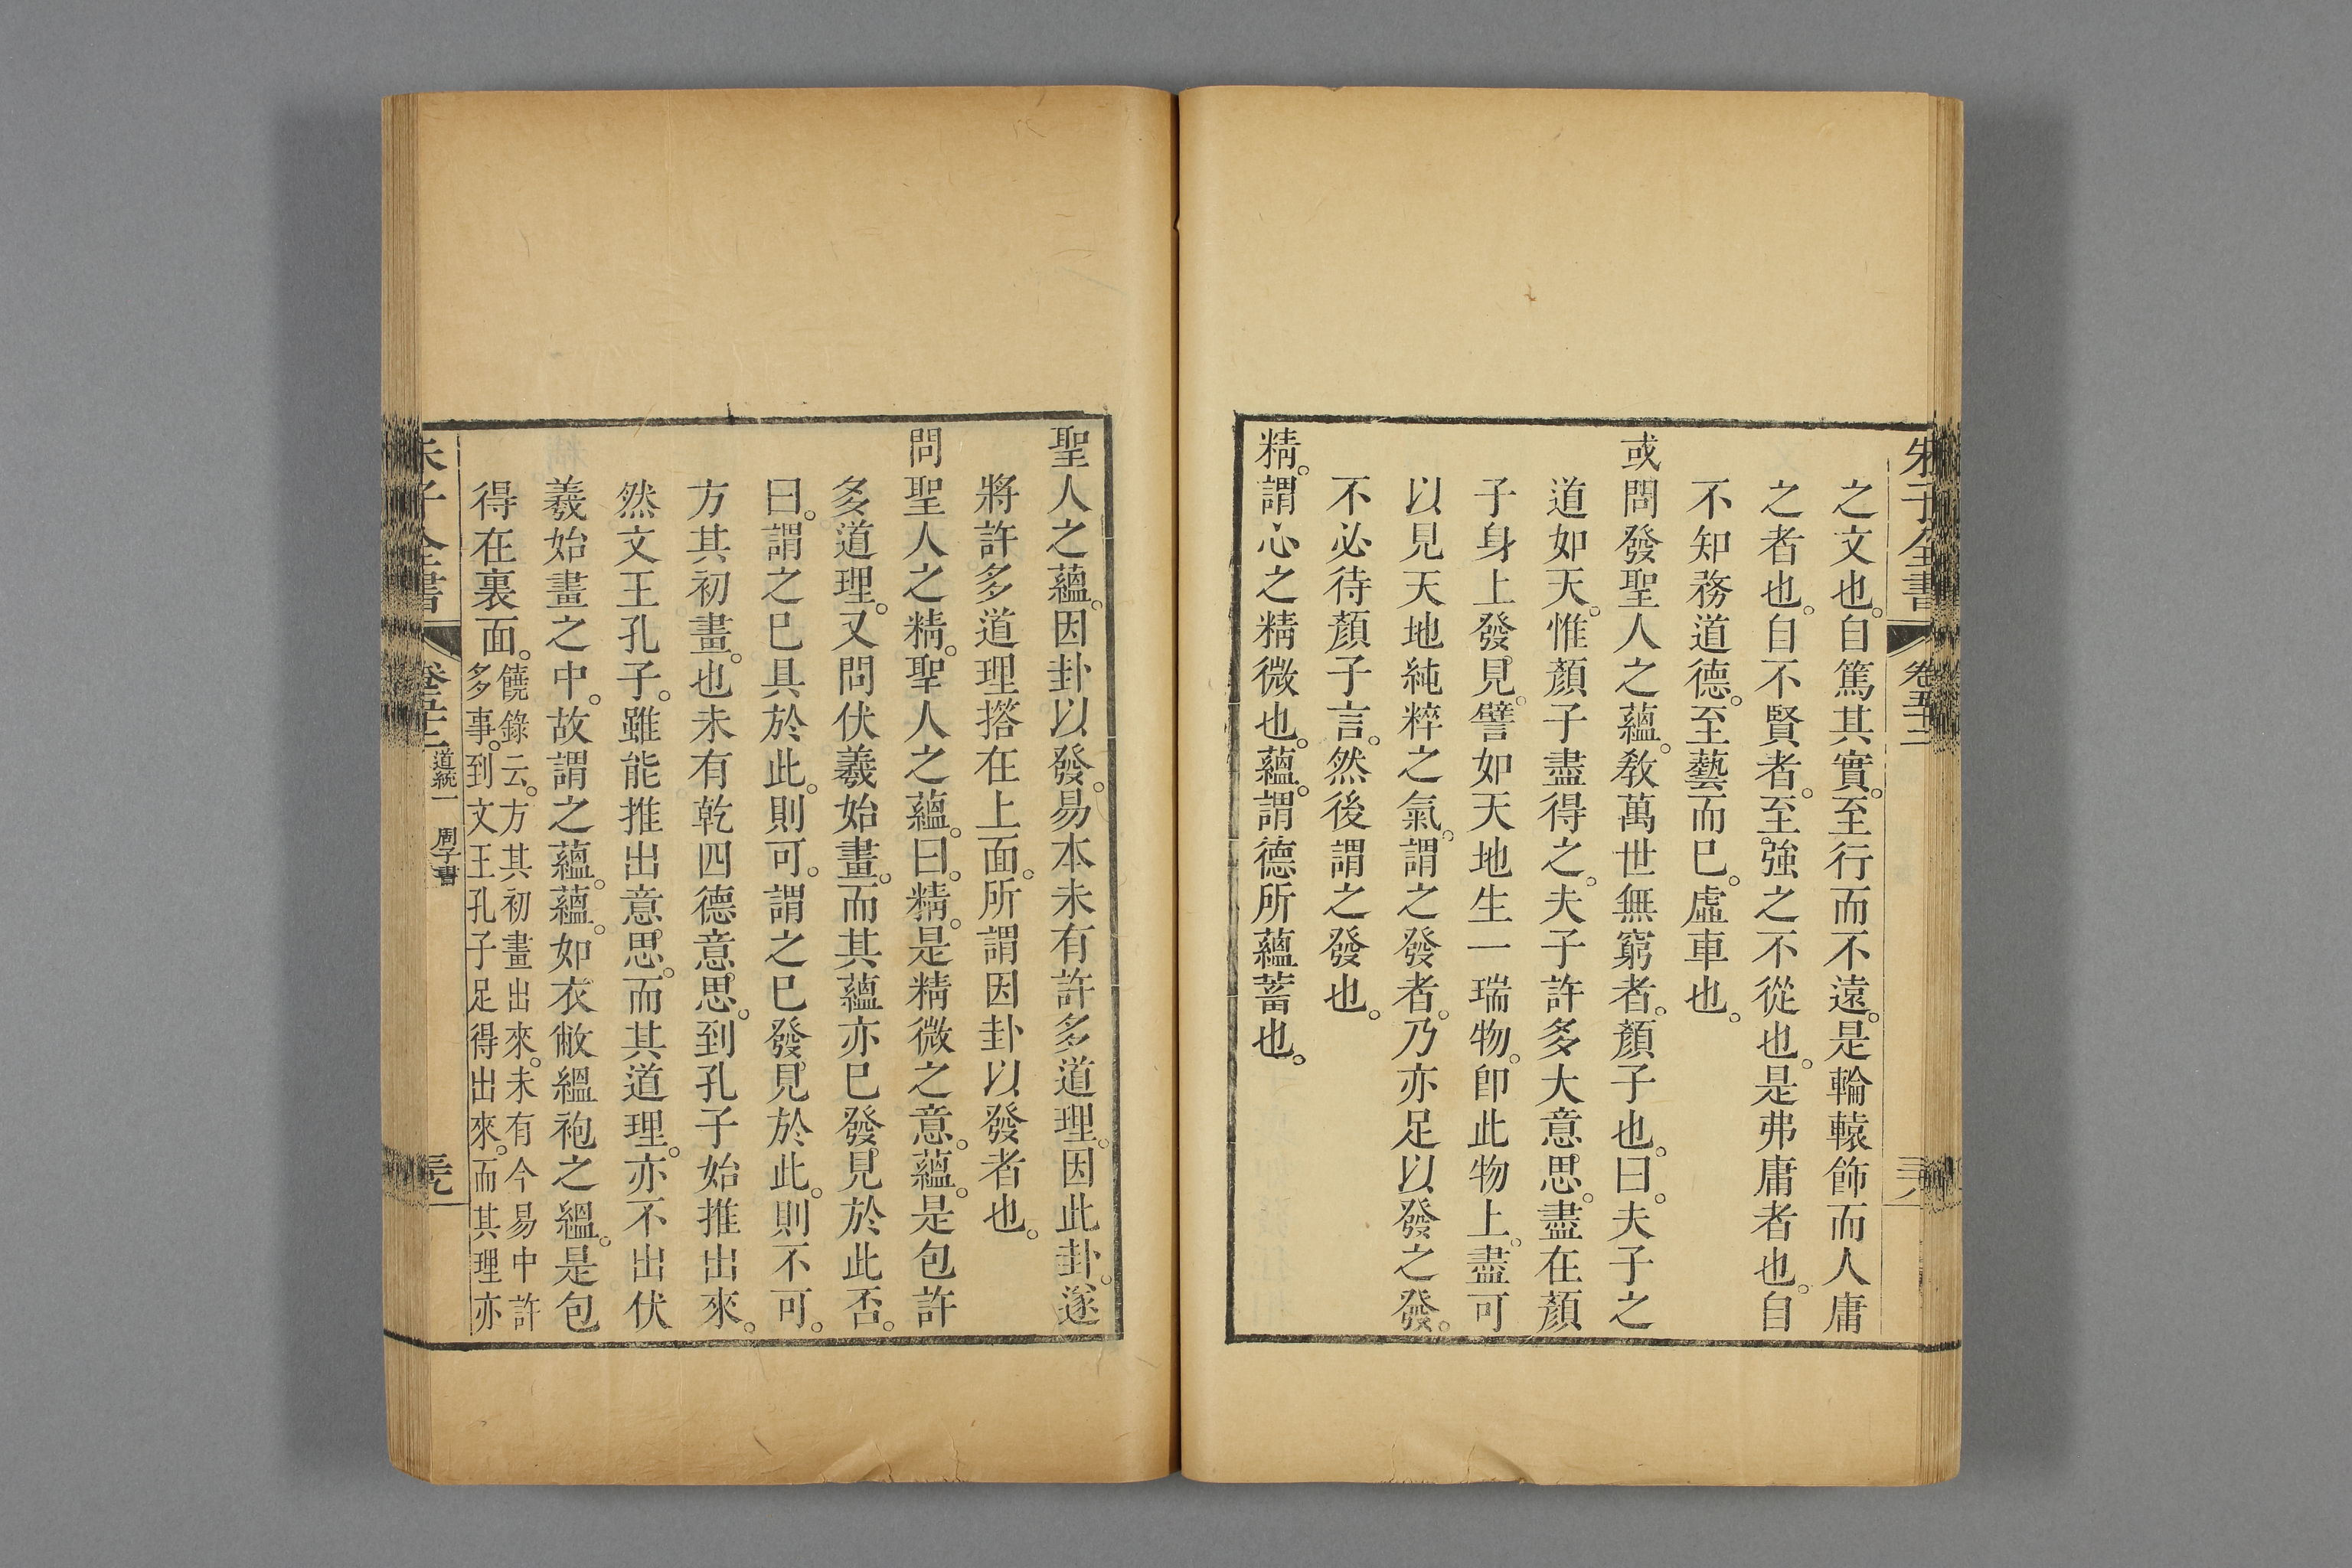 朱子全書 卷五十二
之文也。自篤其實。至行而不遠。是輪轅飾而人庸
之者也。自不賢者。至強之不從也。是弗庸者也。自
不知務道德。至藝而已。虛車也。
或問發聖人之蘊。教萬世無窮者。顏子也。曰。夫子之
道如天。惟顏子盡得之。夫子許多大意思。盡在顏
子身上發見。譬如天地生一瑞物。卽此物上。盡可
以見天地純粹之氣。謂之發者。乃亦足以發之發。
不必待顏子言。然後謂之發也。
精。謂心之精微也。蘊。謂德所蘊蓄也。
聖人之蘊。因卦以發。易本未有許多道理。因此卦。遂
將許多道理搭在上面。所謂因卦以發者也。
問聖人之精。聖人之蘊。曰。精。是精微之意。蘊。是包許
多道理。又問伏羲始畫。而其蘊亦已發見於此否。
曰。謂之已具於此。則可。謂之已發見於此。則不可。
方其初畫。也未有乾四德意思。到孔子始推出來。
然文王孔子。雖能推出意思。而其道理。亦不出伏
羲始畫之中。故謂之蘊。蘊。如衣敝縕袍之縕。是包
得在裏面。饒錄云。方其初畫出來。未有今易中許
多事。到文王孔子足得出來。而其理亦
朱子全書 卷五十二 道統一 周子書